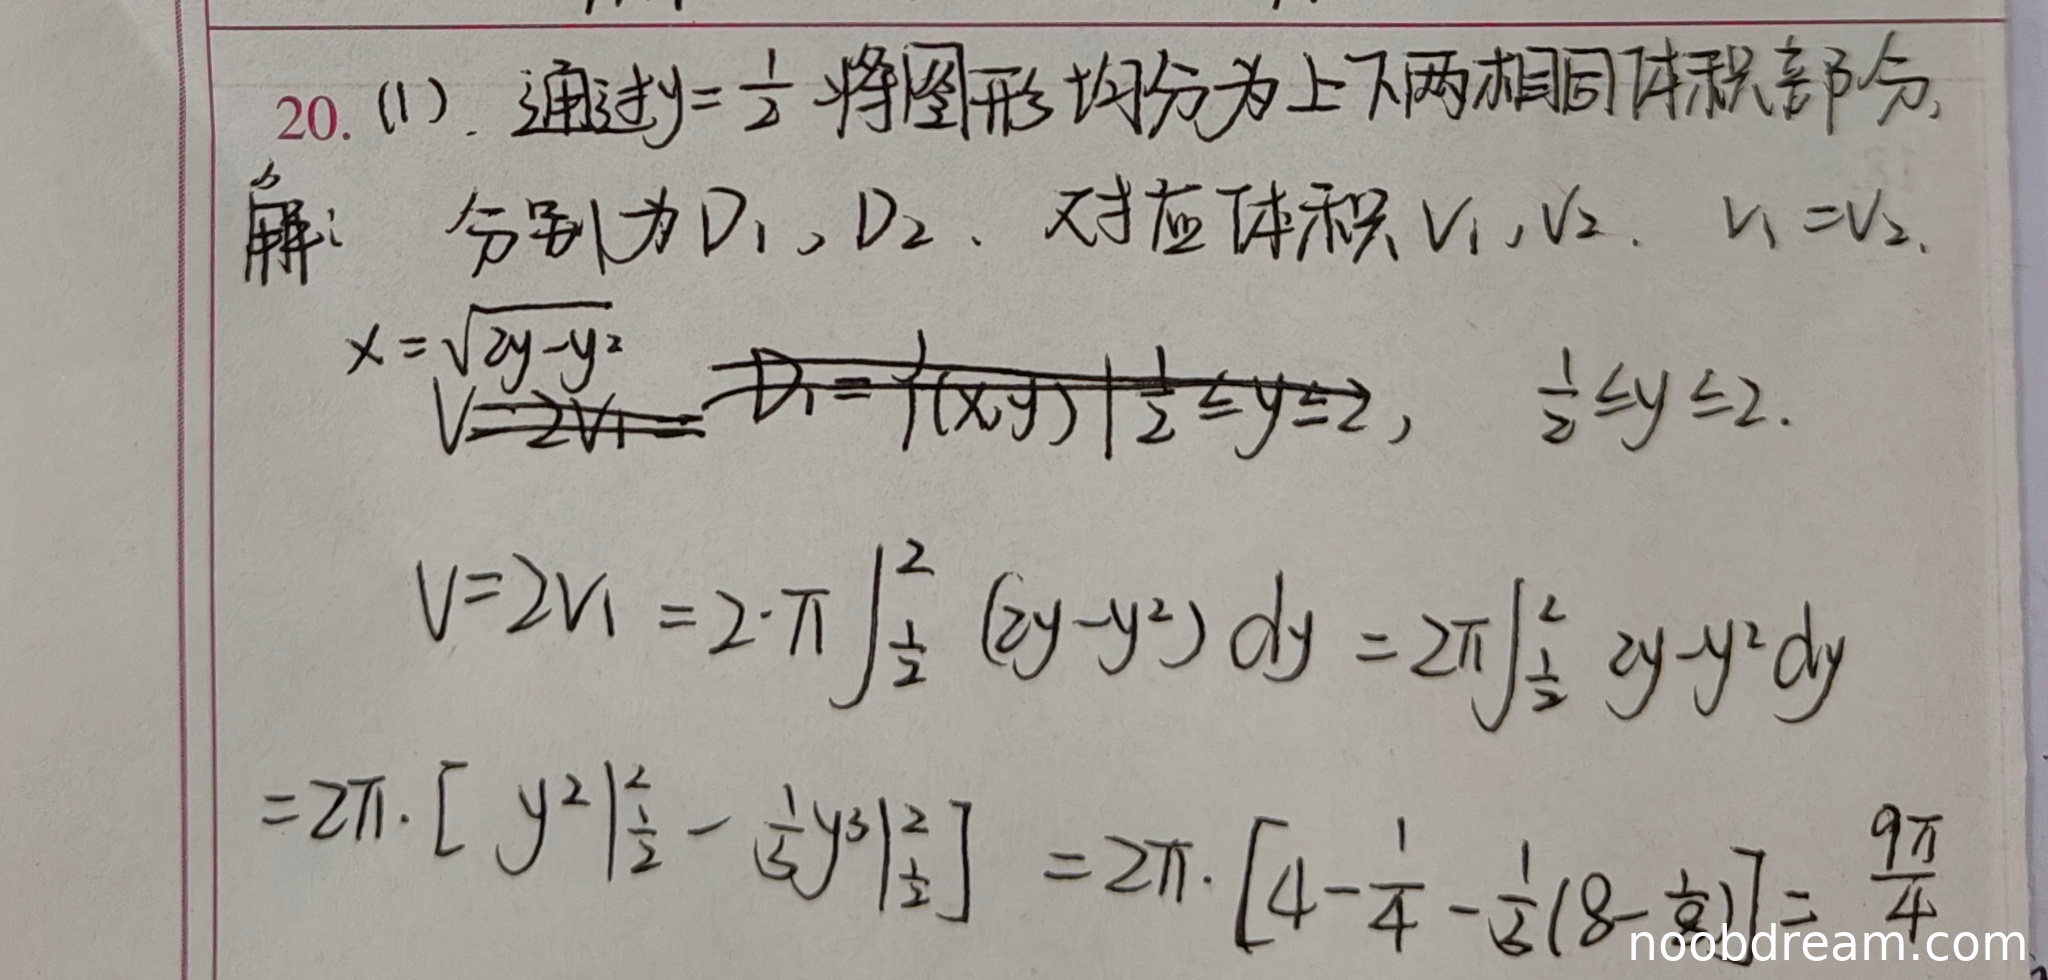 20. (1). 通过y=1/2 将图形均分为上下两相同体积部分,
解: 分别为D₁, D₂. 对应体积V₁, V₂. V₁=V₂.
x=√(2y-y²)
V=2V₁= D₁={(x,y)|1/2≤y≤2, 1/2≤y≤2.
V=2V₁=2·π∫_{1/2}^{2}(2y-y²)dy=2π∫_{1/2}^{2}2y-y²dy
=2π·[y²|_{1/2}^{2}-1/3y³|_{1/2}^{2}]=2π·[4-1/4-1/3(8-1/8)]=9π/4
noobdream.com